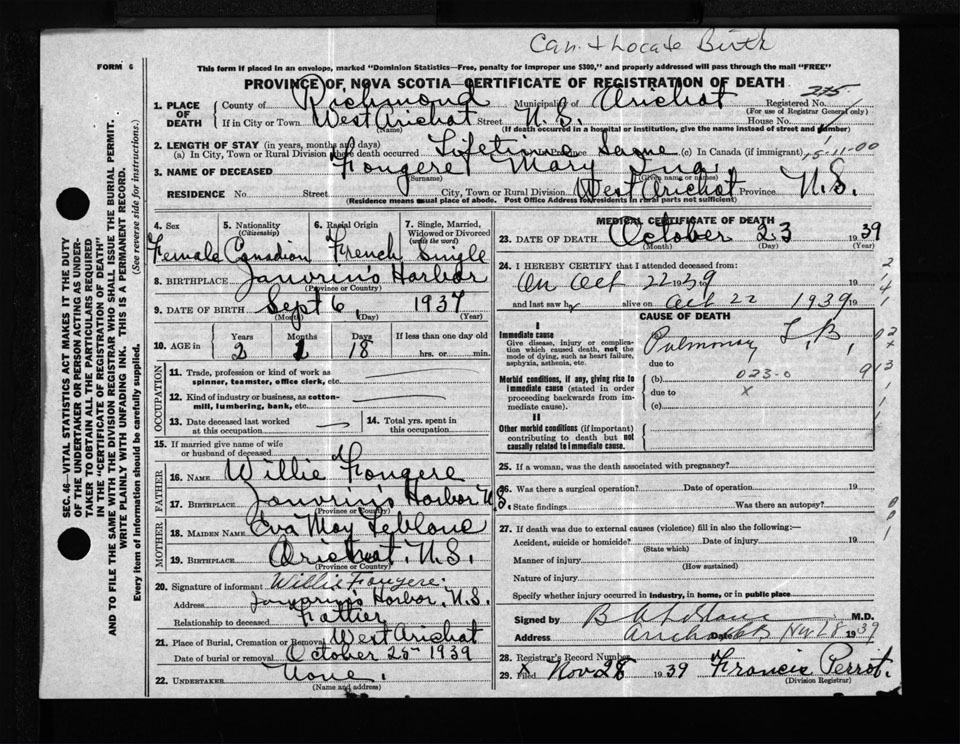 Can. t Locate Birth
FORM 6
This form if placed in an envelope, marked "Dominion Statistics—Free, penalty for improper use $300," and properly addressed will pass through the mail "FREE"
PROVINCE OF NOVA SCOTIA—CERTIFICATE OF REGISTRATION OF DEATH
275
1. PLACE OF DEATH County of Richmond Municipality of Arichat Registered No.
(For use of Registrar General only)
If in City or Town West Arichat Street N.S. House No.
(Name) (If death occurred in a hospital or institution, give the name instead of street and number)
2. LENGTH OF STAY (in years, months and days)
(a) In City, Town or Rural Division where death occurred Lifetime Province Same (c) In Canada (if immigrant) 15-11-00
3. NAME OF DECEASED Fougere Mary
(Surname) (Given name or names)
RESIDENCE No. Street City, Town or Rural Division West Arichat Province N.S.
(Residence means usual place of abode. Post Office Address for residents in rural parts not sufficient)
4. Sex 5. Nationality (Citizenship) 6. Racial Origin 7. Single, Married, Widowed or Divorced (write the word)
Female Canadian French Single
8. BIRTHPLACE Janvrin's Harbor
(Province or Country)
9. DATE OF BIRTH Sept 6, 1937
(Month) (Day) (Year)
10. AGE in Years Months Days If less than one day old
2 1 18 hrs. or min.
OCCUPATION
11. Trade, profession or kind of work as spinner, teamster, office clerk, etc.
12. Kind of industry or business, as cotton-mill, lumbering, bank, etc.
13. Date deceased last worked at this occupation 14. Total yrs. spent in this occupation
15. If married give name of wife or husband of deceased
FATHER
16. NAME Willie Fougere
17. BIRTHPLACE Janvrin's Harbor N.S.
(Province or Country)
MOTHER
18. MAIDEN NAME Eva May Leblanc
19. BIRTHPLACE Arichat N.S.
(Province or Country)
20. Signature of informant Willie Fougere.
Address Janvrin's Harbor, N.S.
Relationship to deceased Father
21. Place of Burial, Cremation or Removal West Arichat
Date of burial or removal October 25 1939
22. UNDERTAKER None.
(Name and address)
MEDICAL CERTIFICATE OF DEATH
23. DATE OF DEATH October 23 1939
(Month) (Day) (Year)
24. I HEREBY CERTIFY that I attended deceased from:
On Oct 22 1939
and last saw h alive on Oct 22 1939
CAUSE OF DEATH
I
Immediate cause
Give disease, injury or complication which caused death, not the mode of dying, such as heart failure, asphyxia, asthenia, etc.
Pulmonary T.B.,
due to
Morbid conditions, if any, giving rise to immediate cause (stated in order proceeding backwards from immediate cause).
(b) 023-0
due to x
(c)
II
Other morbid conditions (if important) contributing to death but not causally related to immediate cause.
25. If a woman, was the death associated with pregnancy?
26. Was there a surgical operation? Date of operation 19
State findings Was there an autopsy?
27. If death was due to external causes (violence) fill in also the following:—
Accident, suicide or homicide? Date of injury 19
(State which)
Manner of injury
(How sustained)
Nature of injury
Specify whether injury occurred in industry, in home, or in public place
Signed by M.D.
Address Arichat Nov 28 1939
28. Registrar's Record Number
29. Filed Nov 28 1939 Francis Perrot.
(Division Registrar)
SEC. 46—VITAL STATISTICS ACT MAKES IT THE DUTY
OF THE UNDERTAKER OR PERSON ACTING AS UNDERTAKER TO OBTAIN ALL THE PARTICULARS REQUIRED
IN THE "CERTIFICATE OF REGISTRATION OF DEATH"
AND TO FILE THE SAME WITH THE DIVISION REGISTRAR WHO SHALL ISSUE THE BURIAL PERMIT.
WRITE PLAINLY WITH UNFADING INK. THIS IS A PERMANENT RECORD.
Every item of information should be carefully supplied. (See reverse side for instructions.)